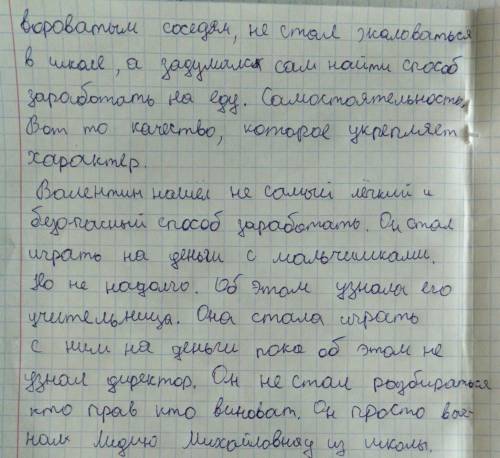 вороватым соседям, не стал жаловаться
в школе, а задумался сам найти способ
заработать на еду. Самостоятельность.
Вот то качество, которое укрепляет
характер.
Валентин нашёл не самый лёгкий и
безопасный способ заработать. Он стал
играть на деньги с мальчишками.
Но не надолго. Об этом узнала его
учительница. Она стала играть
с ним на деньги пока об этом не
узнал директор. Он не стал разбираться
кто прав кто виноват. Он просто выг-
нал Лидию Михайловну из школы.